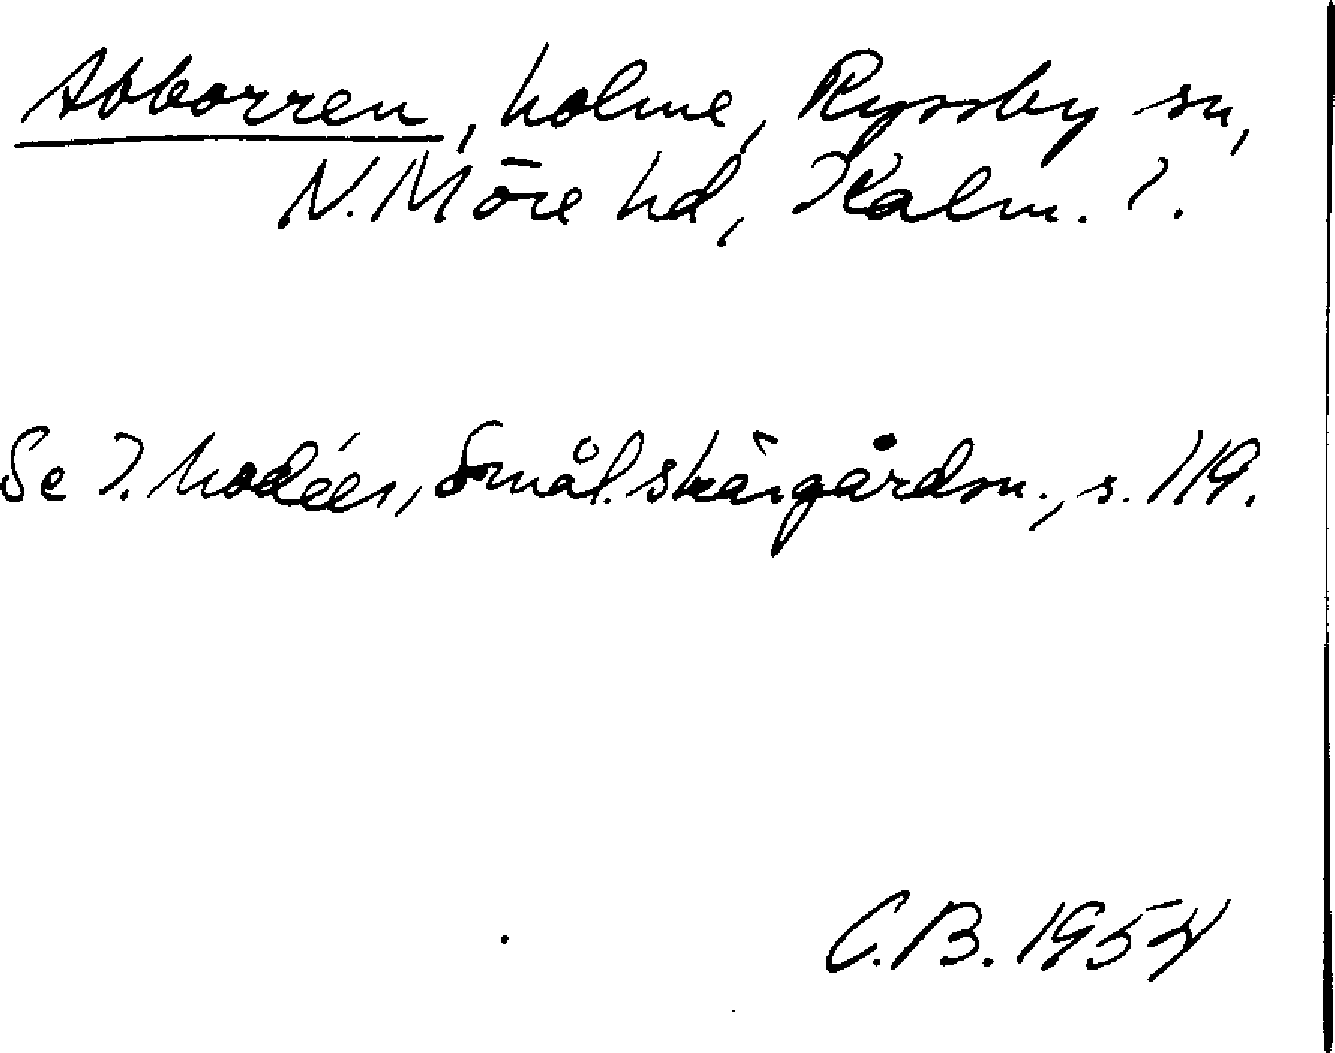 Abborren, holme, Ryssby sn,
N. Möre hd, Kalm. l.
Se I. Modéer, Smål. skärgårdsn., s. 119.
C.B. 1954